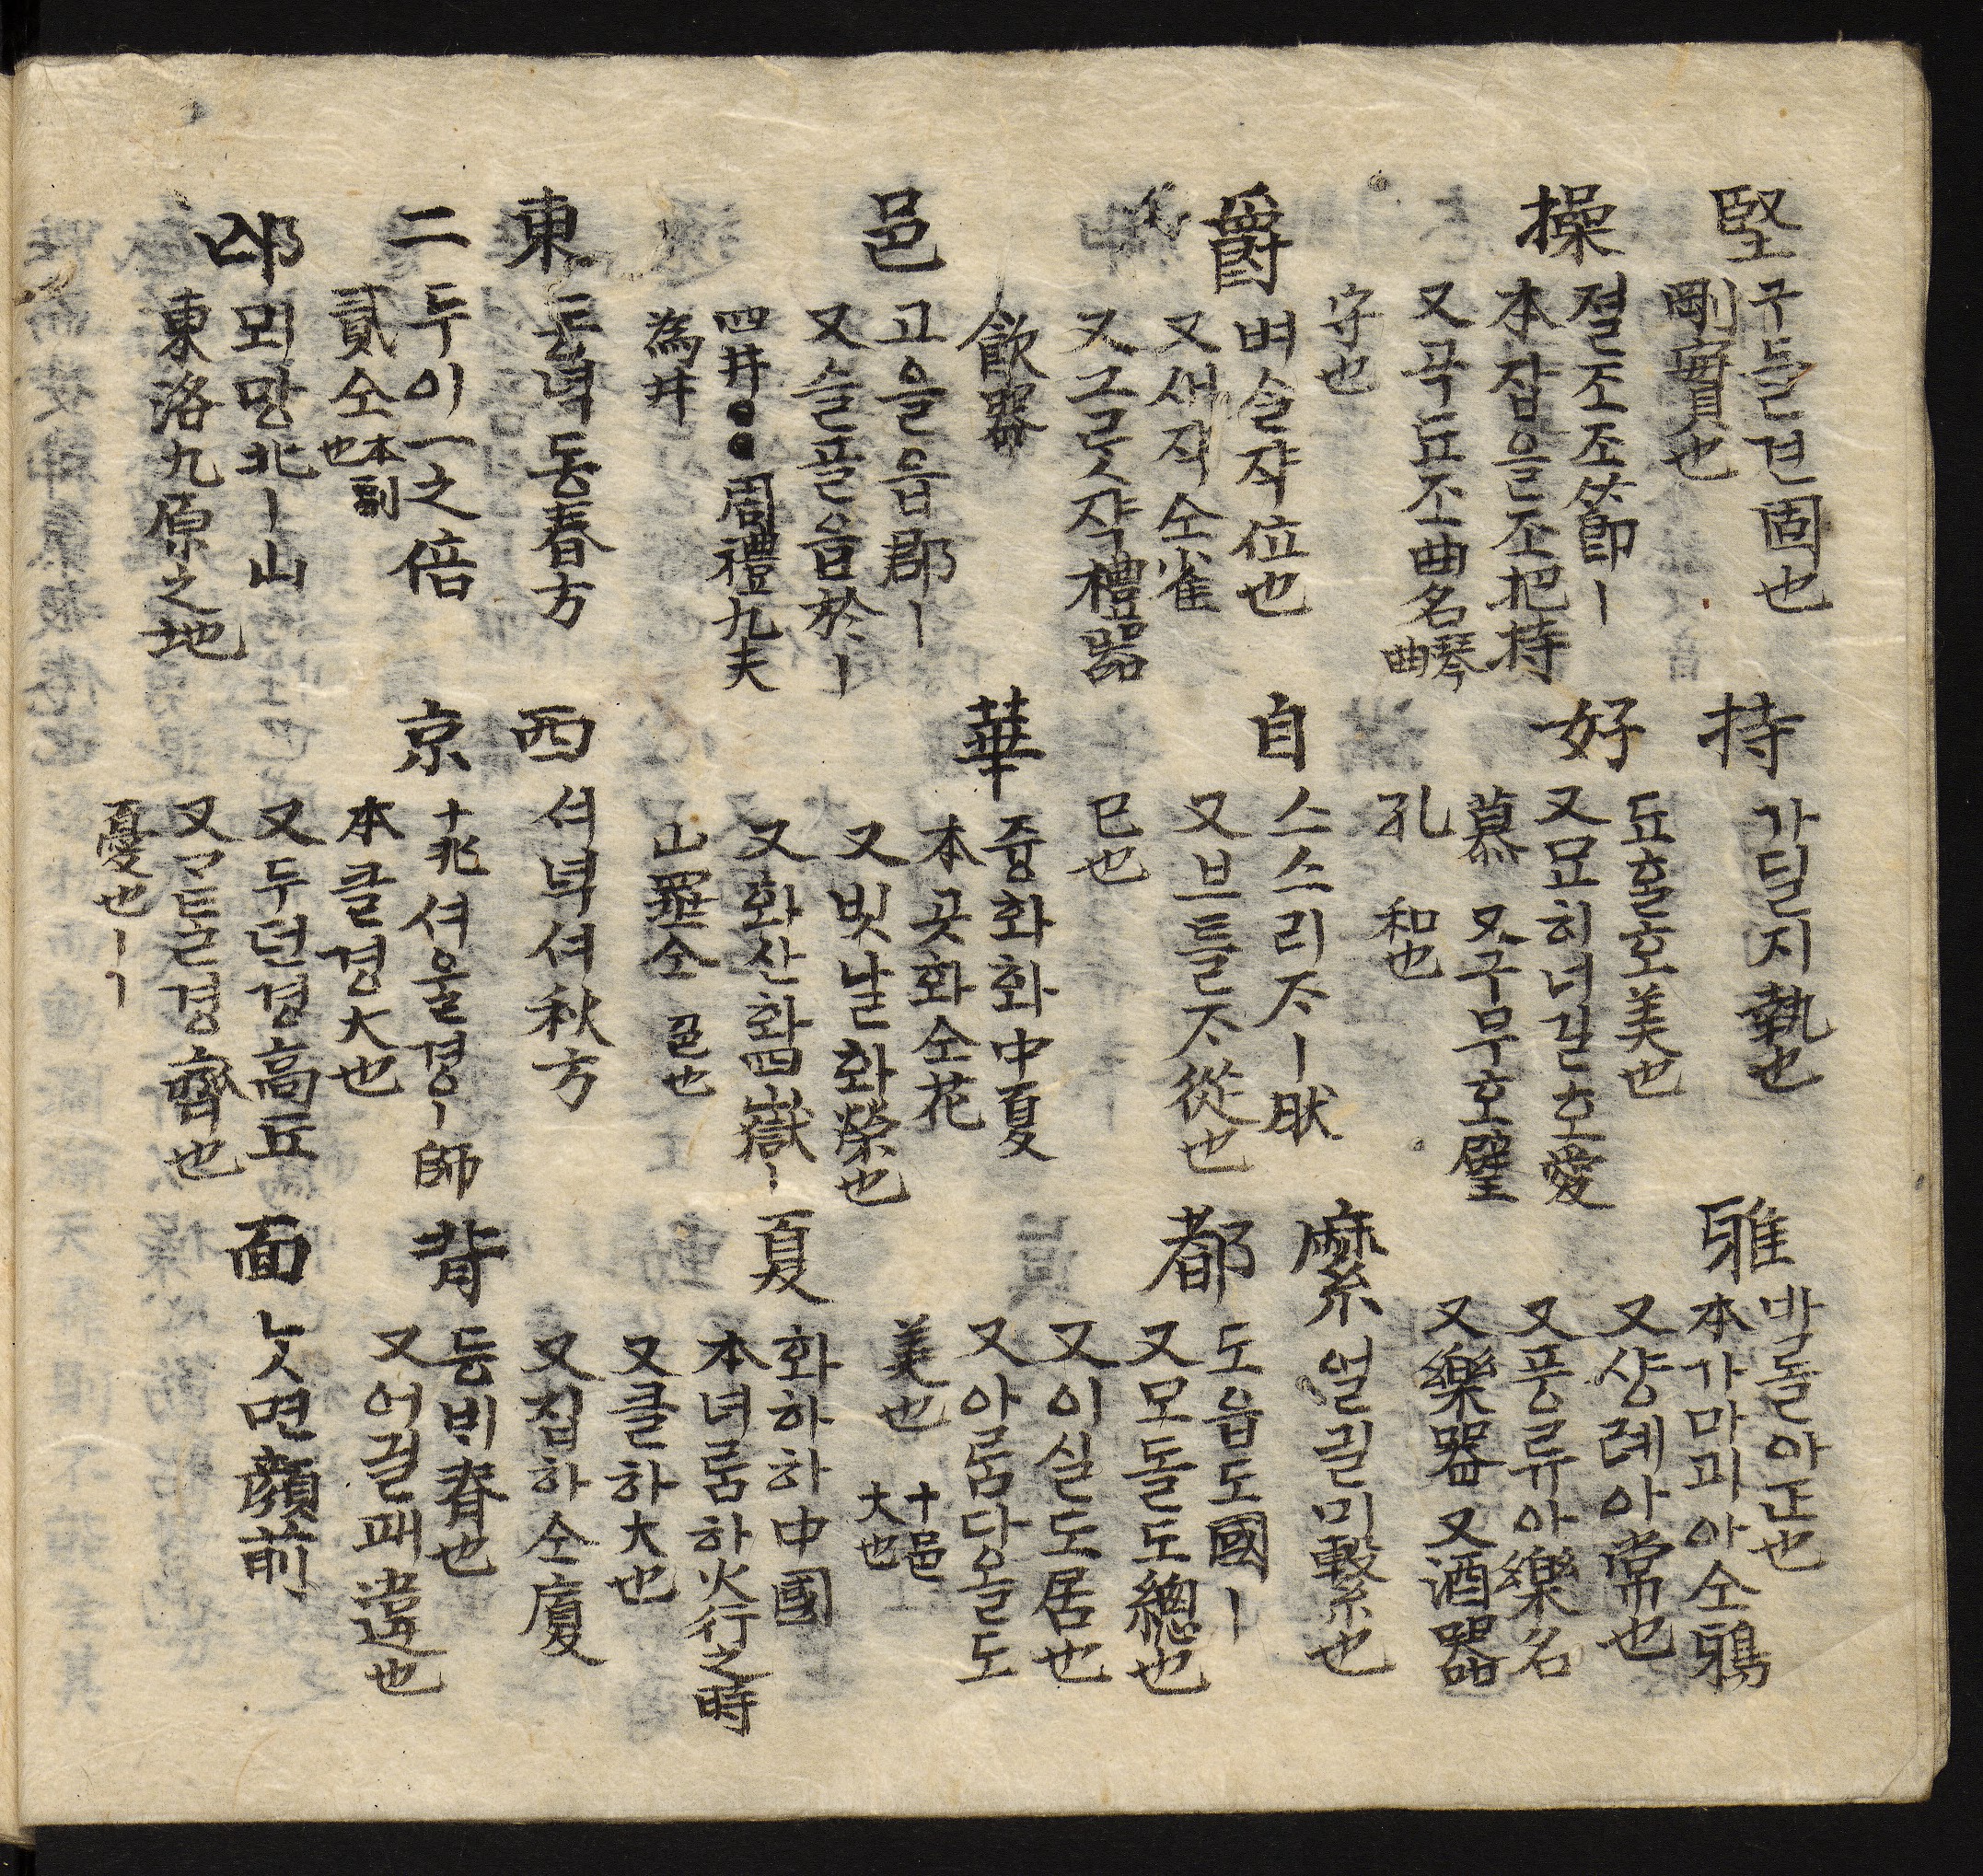 堅
구들견固也
剛實也
持
가딜지執也
雅
바롤아正也
本가마괴아仝鴉
又샹례아常也
又풍류아樂名
又樂器 又酒器
操
졀조조節ㅣ
本잡을조把持
又곡됴조曲名琴曲
守也
好
됴흘호美也
又묘히녀길호愛
慕 又구무호璧
孔 和也
爵
벼슬쟉位也
又새쟉仝雀
又그릇쟉禮器
飮器
自
스스리ᄌᆞㅣ狀
又브틀ᄌᆞ從也
已也
縻
얼긜미繫也
都
도읍도國ㅣ
又모돌도總也
又이실도居也
又아룸다올도
美也 十邑 大也
邑
고을읍郡ㅣ
又슬플읍於ㅣ
四井〇〇周禮九夫
為井
華
즁화화中夏
本곳화仝花
又빗날화榮也
又화산화四嶽ㅣ
山崋仝 邑也
夏
화하하中國
本녀룸하火行之時
又클하大也
又집하仝廈
東
동녁동春方
西
셔녁셔秋方
二
두이一之倍
貳仝本副也
京
十兆 셔울경ㅣ師
本클경大也
又두던경高丘
又ᄀᆞ툰경齊也
憂也ㅣㅣ
背
등비脊也
又어귈패違也
邙
뫼망北ㅣ山
東洛九原之地
面
ᄂᆞᆺ면顔前